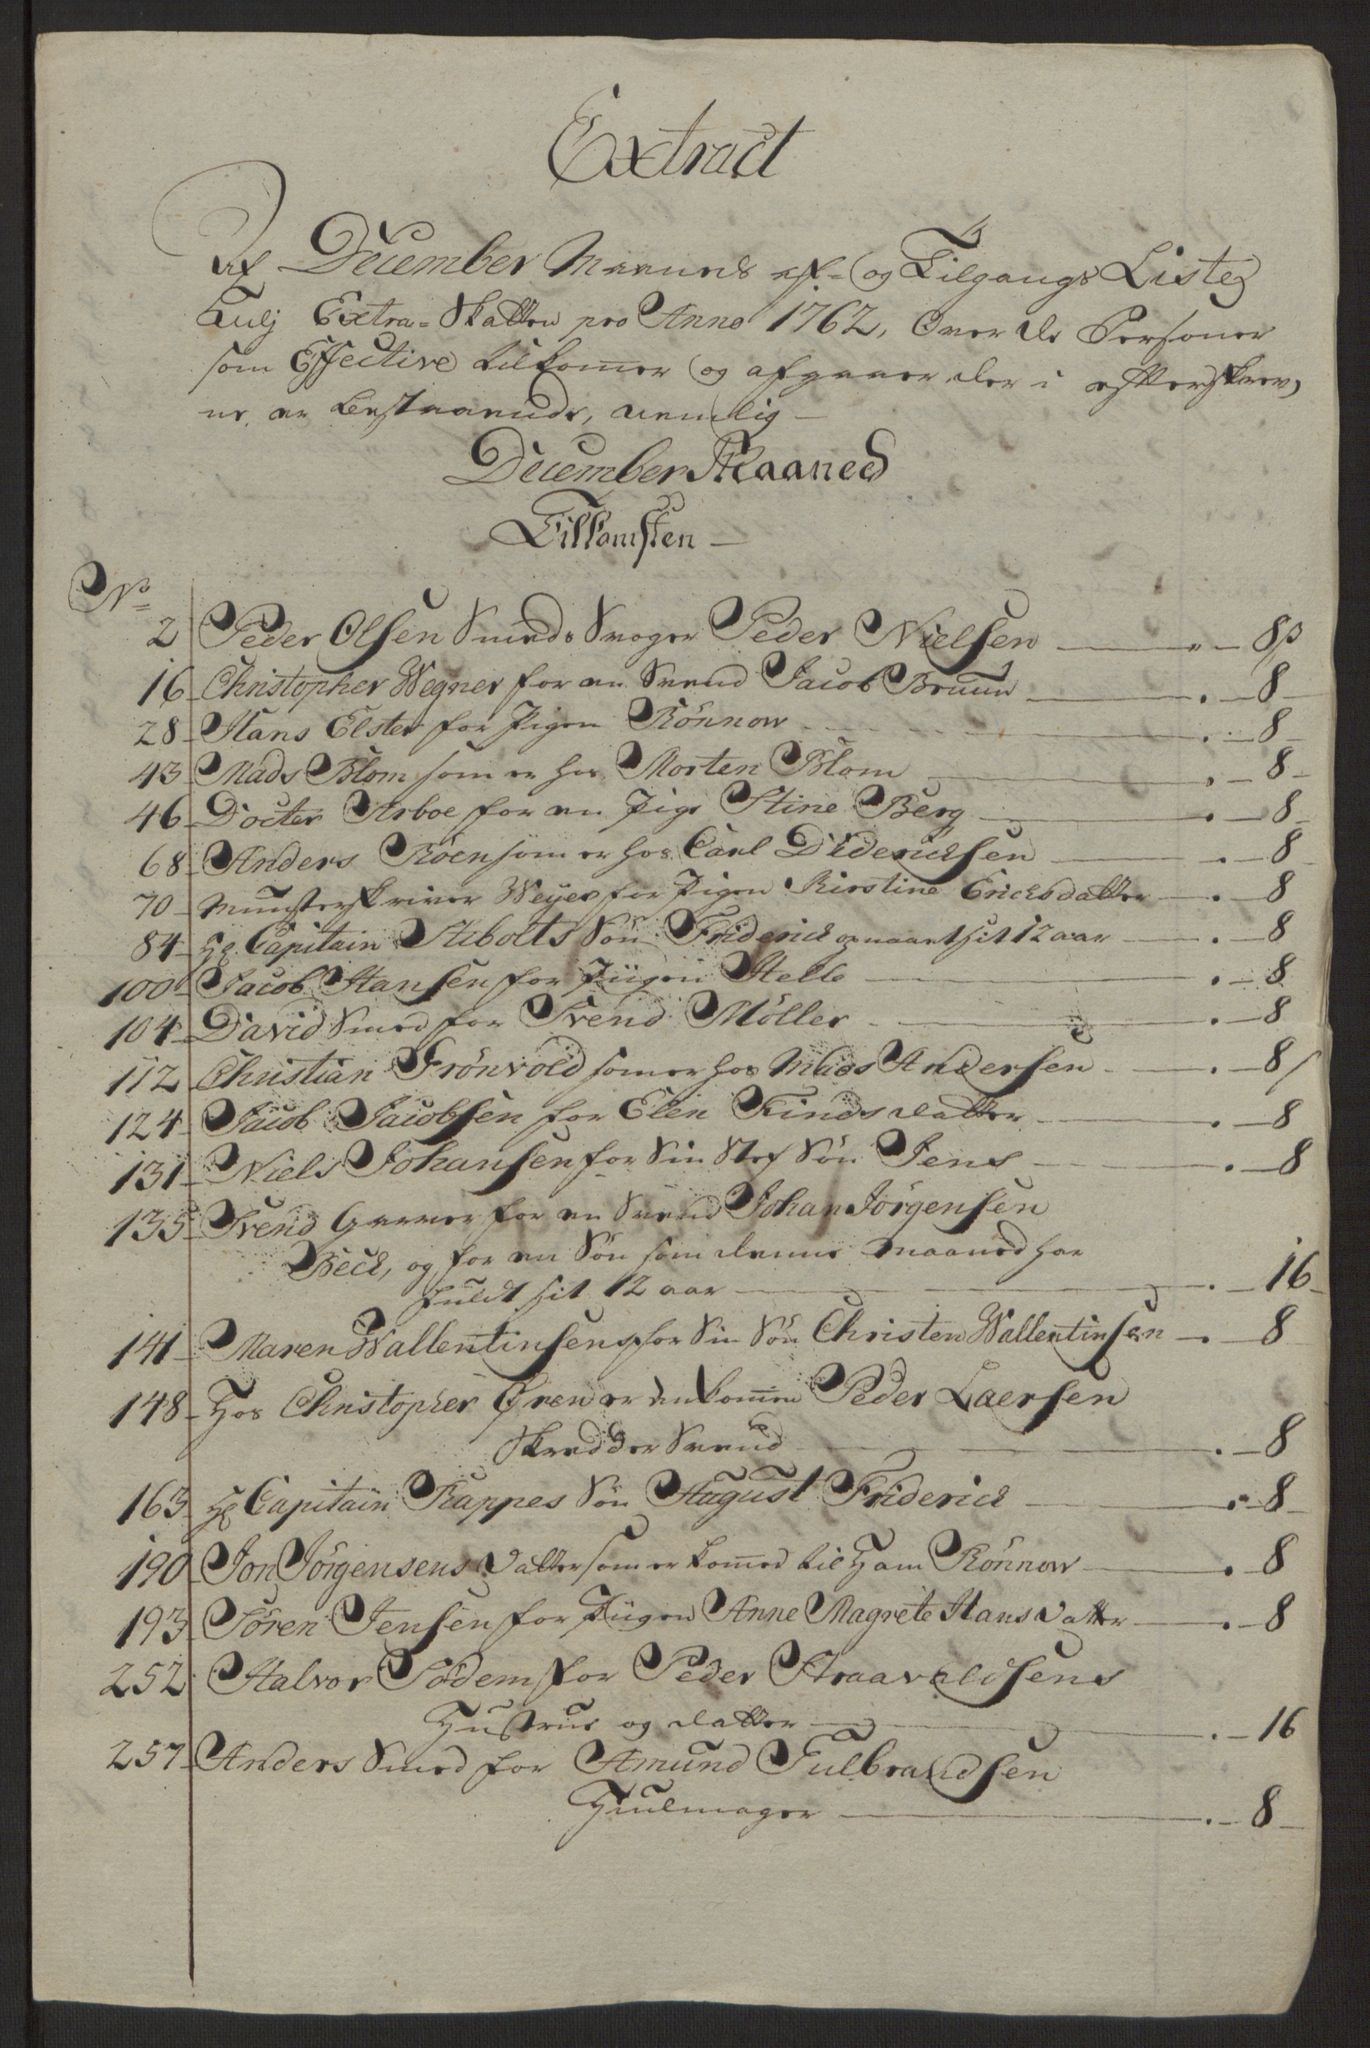 Extract
Af December Maaneds af- og Tilgangs Liste
Extra-Skatten pro Anno 1762, Over de Personer
som Effective tilkommer og afgaaer, der i efterskrev,
ne er bestaaende, nemlig
December Maaned
Tilkomsten
No
2 Peder Olsen Smeds Svoger Peder Nielsen - 8ß
16 Christopher Wegner for en Svend Jacob Bruun - 8
28 Hans Elster for Pigen Rönnow - 8
43 Mads Blom som er hos Morten Blom - 8
46 Docter Arboe for en Pige Stine Berg - 8
68 Anders Röen som er hos Carl Didericksen - 8
70 Munsterskriver Weyer for Pigen Kirstine Ericksdatter - 8
84 Hr Capitain Stibolts Sön Friderick opnaaet sit 12 aar - 8
100 Jacob Hansen for Piigen Helle - 8
104 David Smed for Svend Möller - 8
112 Christian Frönvold som er hos Mads Andersen - 8
124 Jacob Jacobsen for Elen Findsdatter - 8
131 Niels Johansen for Sin Stef Sön Jens - 8
135 Svend Garver for en Svend Johan Jörgensen
Beck, og for en Sön som denne Maaned har
fuldt sit 12 aar - 16
141 Maren Wallentinsens for Sin Sön Christen Wallentinsen - 8
148 Hos Christopher Ören er enkommen Peder Laersen
Skrædder Svend - 8
163 Hr Capitain Rappes Sön August Friderick - 8
190 Jon Jörgensens Datter som er kommed til Ham Rönnow - 8
193 Sören Jensen for Piigen Anne Magrete Hansdatter - 8
252 Halvor Sodem for Peder Straavaldsens
Hustrue og datter - 16
257 Anders Smed for Amund Gulbrandsen
Hiulmager - 8